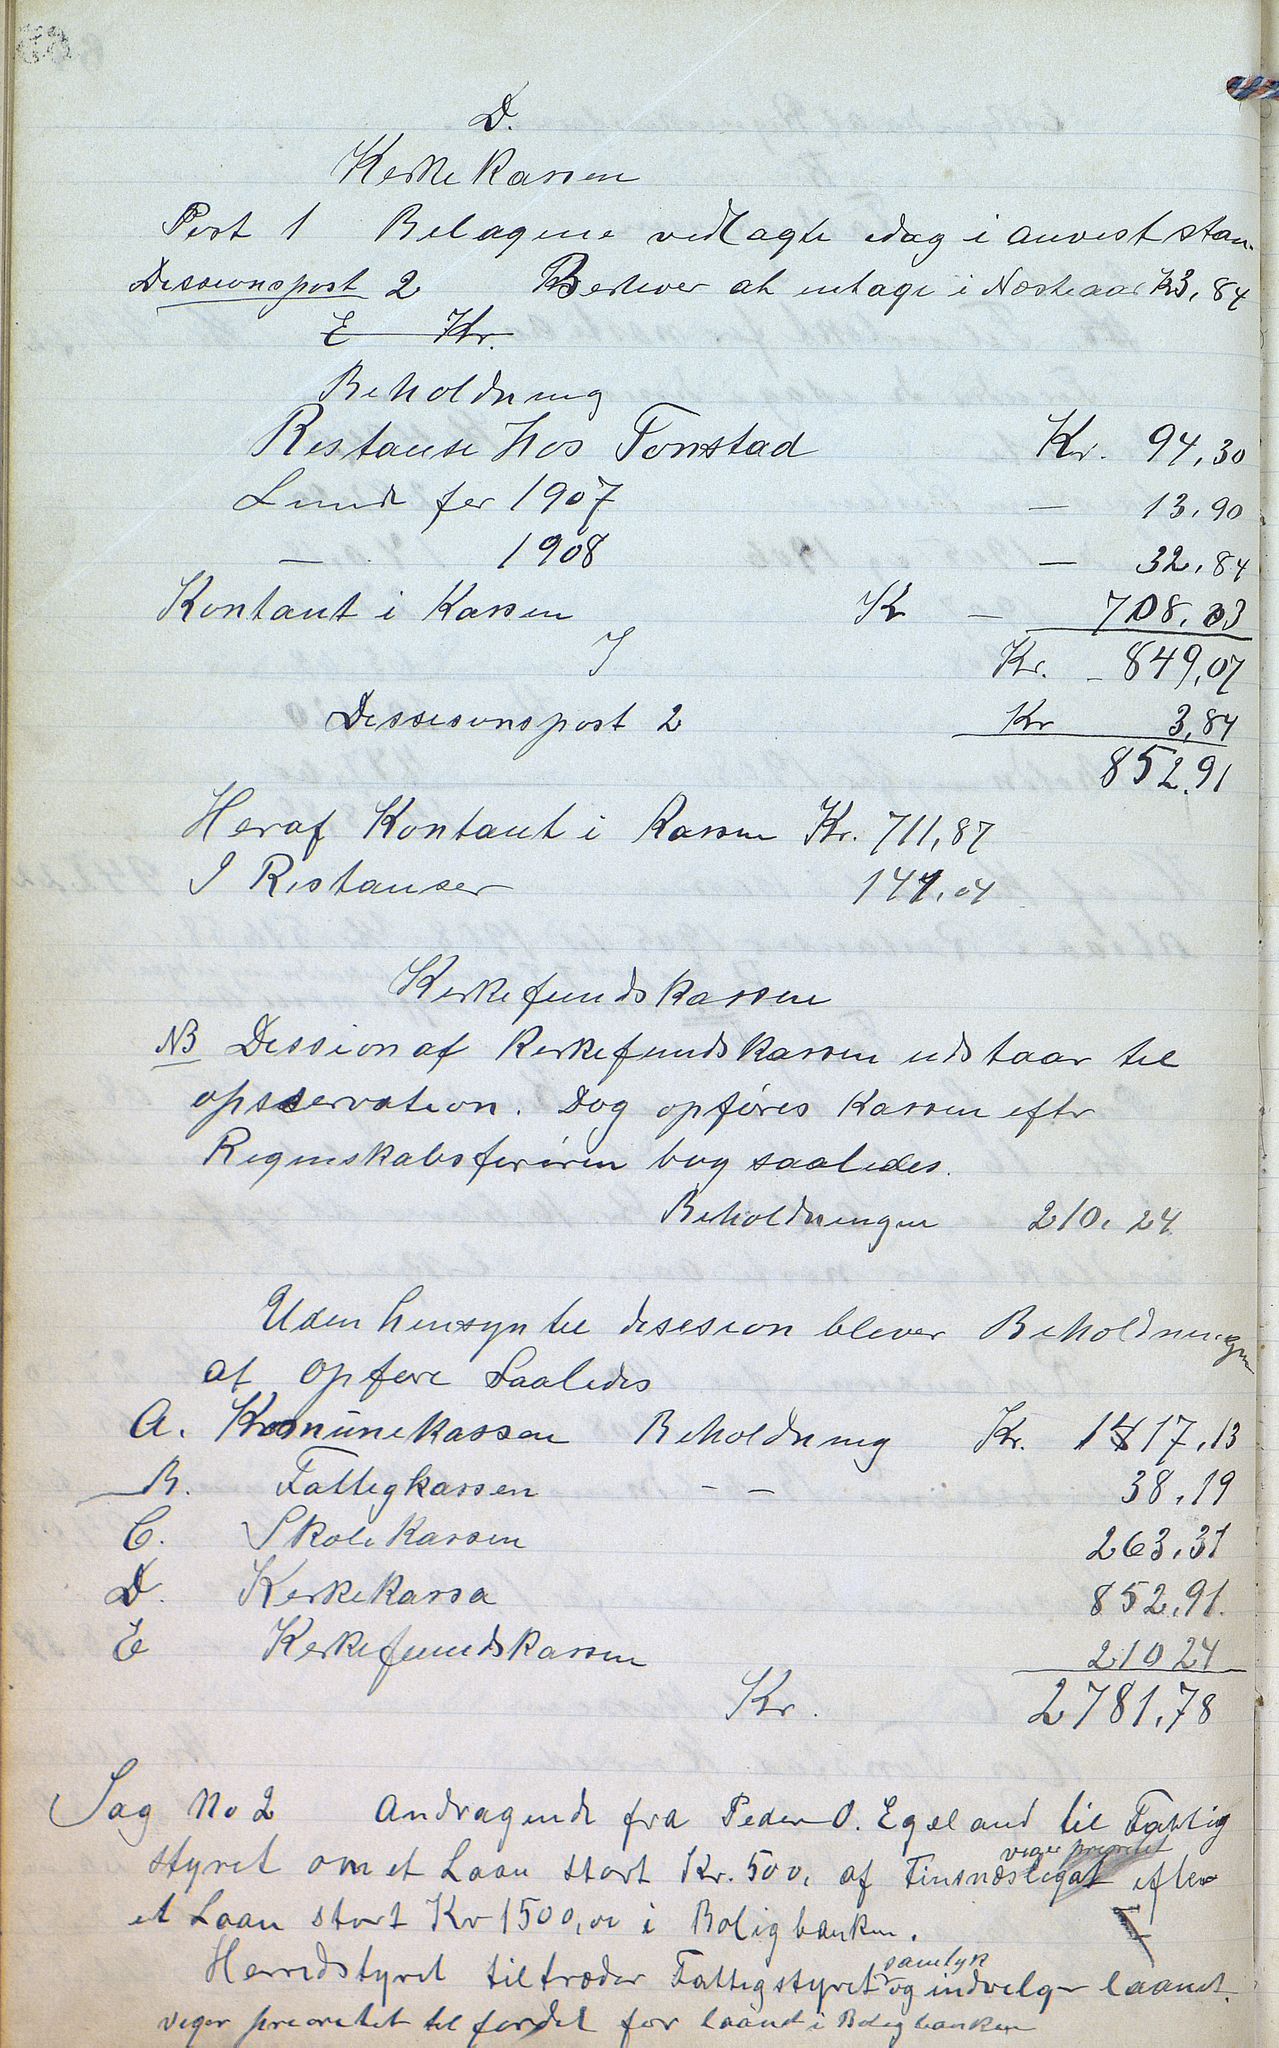 D.
Kerke kassen
Post 1 Belagene vedlagte idag i anvest stan.
Dessionspost 2 Berhver at intage i Næsteaar Kr 3,84
E Kr.
Beholdning
Restanse hos Tonstad Kr. 94,30
Lund for 1907 — 13,90
— 1908 — 32,84
Kontant i Kassen Kr — 708,03
I Kr. - 849,07
Dessesionspost 2 Kr 3,84
852.91
Heraf Kontant i Kassen Kr. 711,87
I Restanser 141,04
Kerkefundskassen
NB Dession af Kerkefundskassen udstaar til
opsservation. Dog opføres Kassen efter
Regnskabsførören bog saaledes.
Beholdningen 210,24
Uden hensyn til desesion blever Beholdningen
at opføre Saaledes
A. Komunekassen Beholdning Kr. 1417,13
B. Fattigkassen - - 38,19
C. Skolekassen 263,31
D. Kerkekassa 852,91.
E Kerkefundskassen 210 24
Kr. 2781,78
Sag No 2 Andragende fra Peder O. Egeland til Fattig
styret om et Laan stort Kr. 500, af Finsnæslegat viger prioritet efter
et Laan stort Kr 1500,00 i Boligbanken.
Herredstyret tiltræder Fattigstyret samtyk og indvelger laanet.
viger preoretet til fordel for laanet i Boligbanken